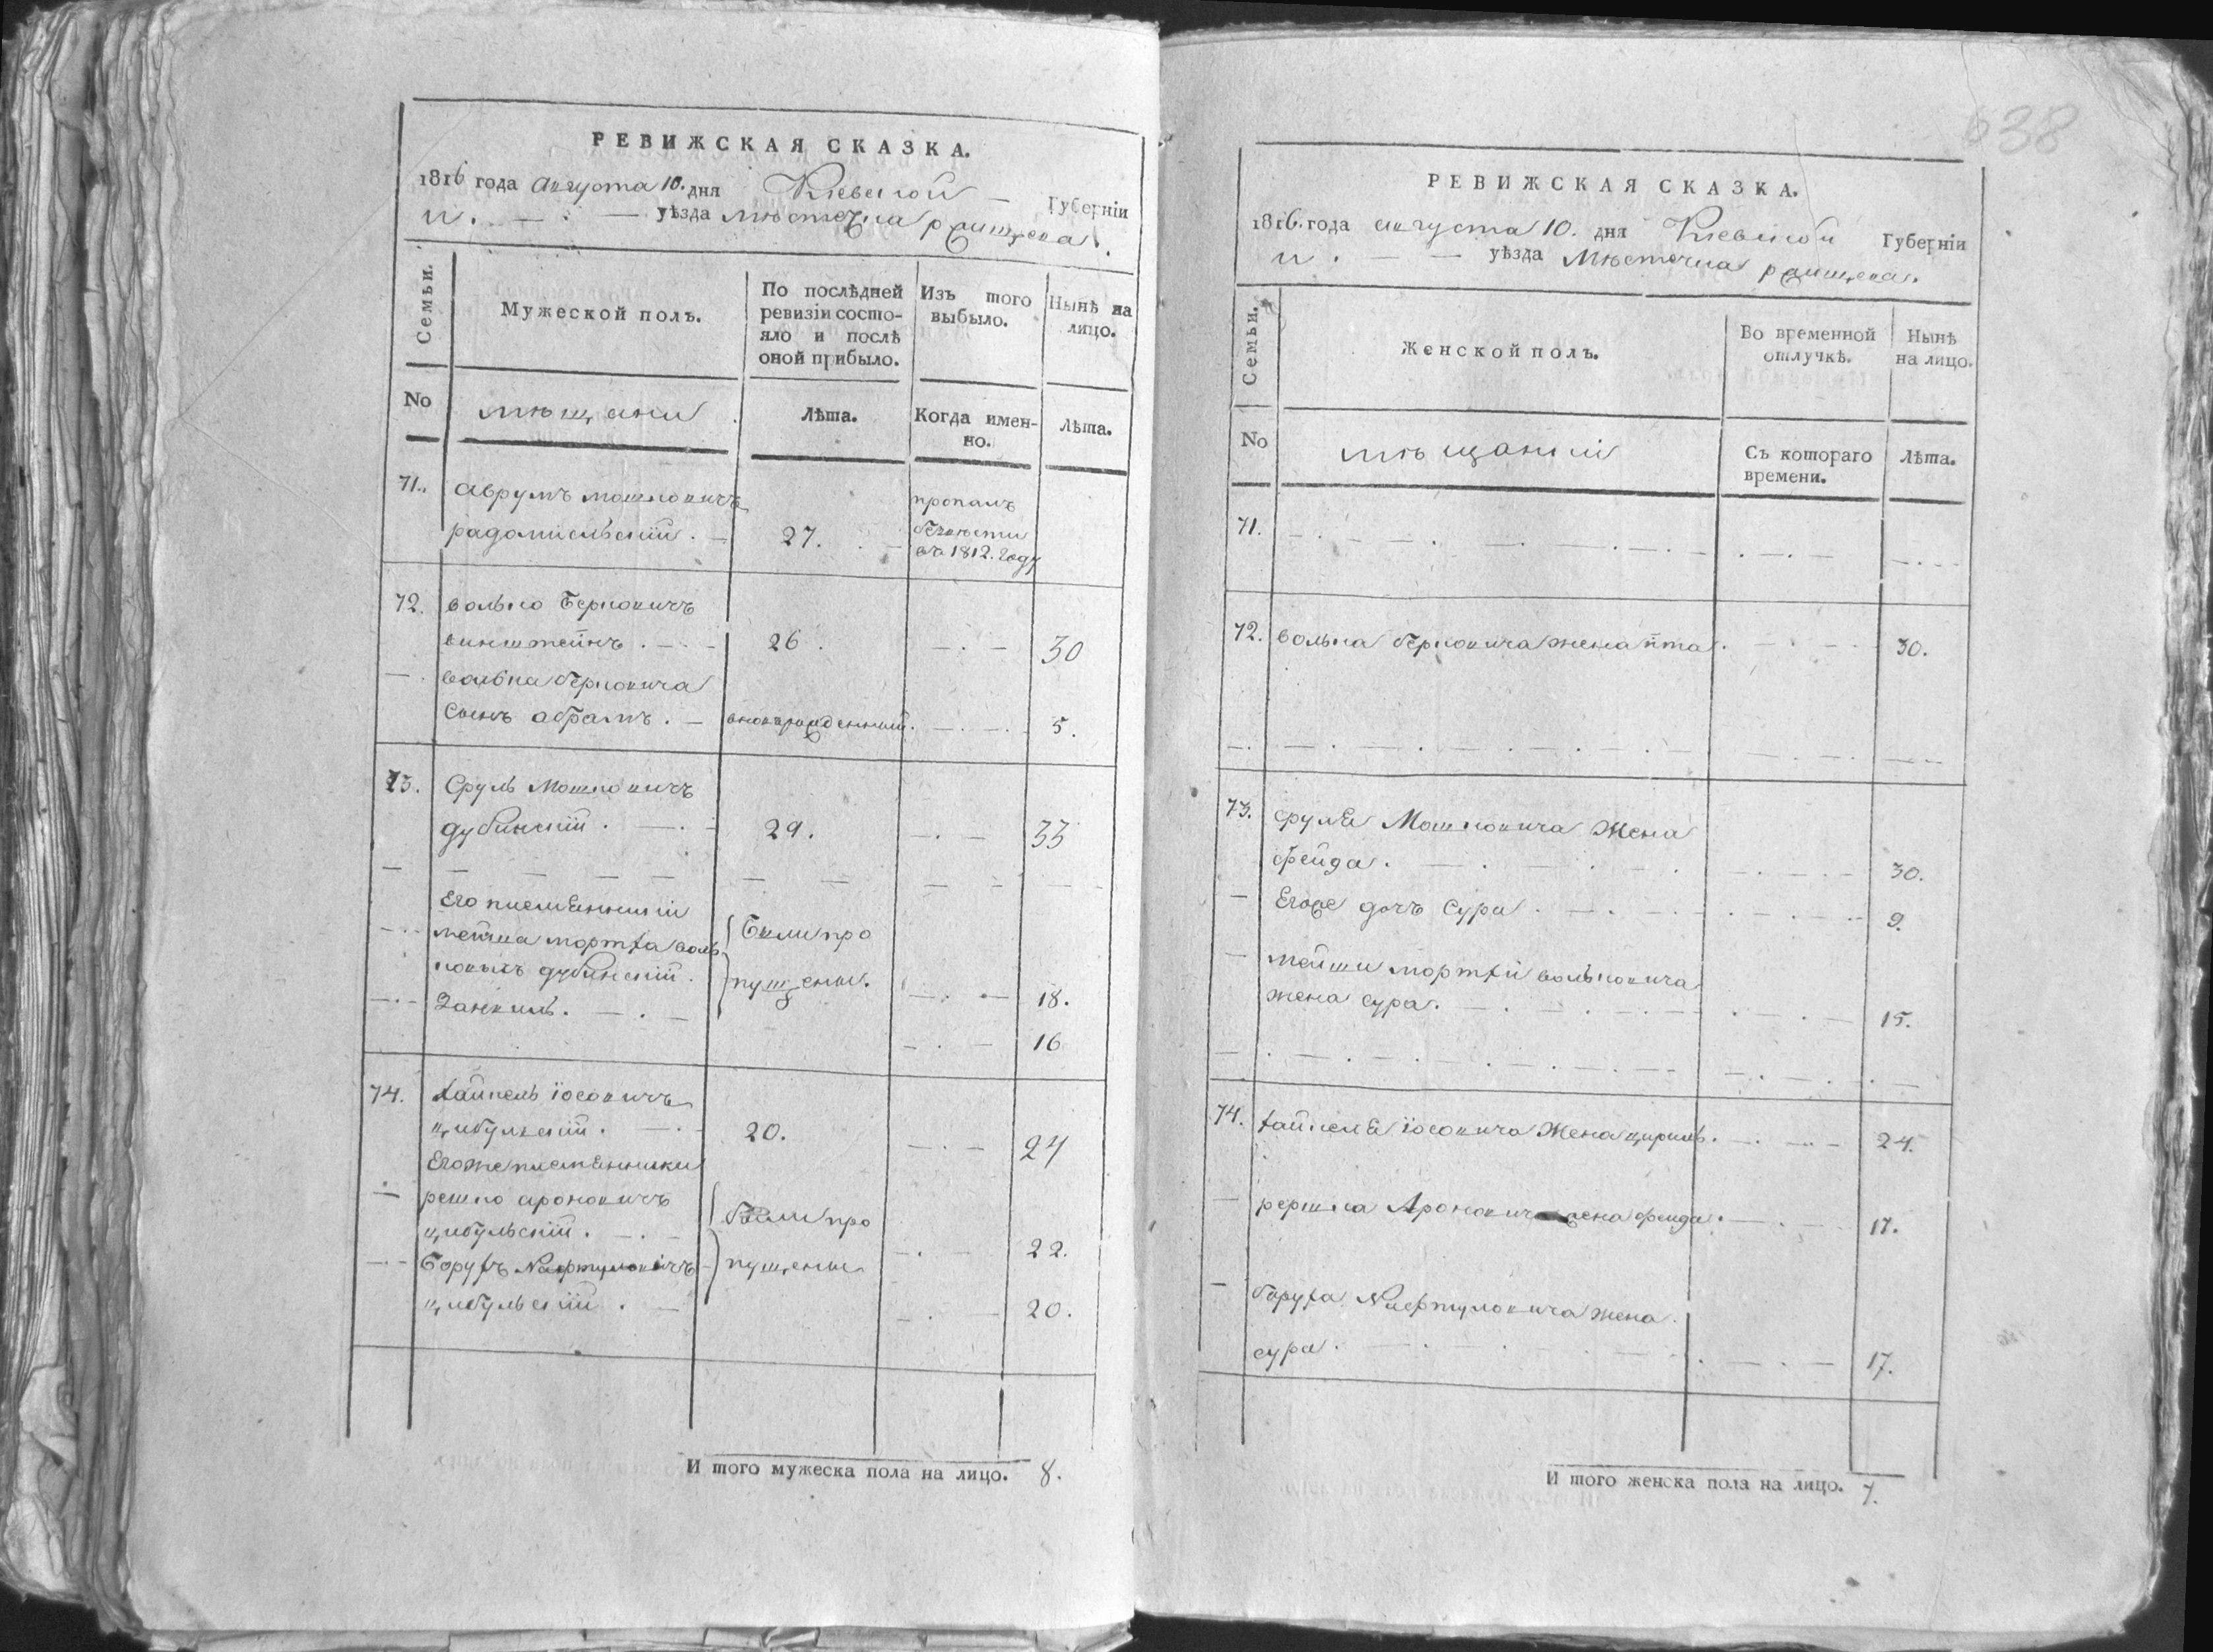 638
РЕВИЖСКАЯ СКАЗКА.
1816 года августа 10. дня Кіевской Губерніи
и. уѣзда мѣстечка ращска.
Семьи.
Мужеской полъ.
По послѣдней ревизіи состо-
яло и послѣ оной прибыло.
Изъ того выбыло.
Нынѣ на лицо.
No
мѣщани
Лѣта.
Когда имен-
но.
Лѣта.
71. Аврумъ мошковичъ
радомисльскій. 27. пропалъ
безвѣсти
въ 1812. году
72. волько Берковичъ
винштейнъ. 26. 30
волька берковича
синъ абрамъ. новорожденный. 5.
73. Сруль Мошковичъ
дубинскій. 29. 33
Его племенникіи
мошка мортха воль
ковичъ дубинскій. Били про
пущены. 18.
Занвиль. 16
74. хайкель іосовичъ
цибульскій. 20. 24
Егоже племенники
решко ароновичъ
цибульскій. били про 22.
Борухъ Нафтуловичъ пущены
цибульскій. 20.
И того мужеска пола на лицо. 8.
РЕВИЖСКАЯ СКАЗКА.
1816. года августа 10. дня Кіевской Губерніи
и. уѣзда Мѣстечка ращска.
Семьи.
Женской полъ.
Во временной отлучкѣ.
Нынѣ на лицо.
No
мѣщанкіи
Съ котораго времени.
Лѣта.
71.
72. волька берковича жена ита. 30.
73. сруля Мошковича Жена
фейда. 30.
Егоже дочь Сура. 9.
мошки мортхи вольковича
жена сура. 15.
74. хайкеля іосовича Жена цириль. 24.
решка Ароновича жена фрейда. 17.
боруха Нафтуловича жена
сура. 17.
И того женска пола на лицо. 7.